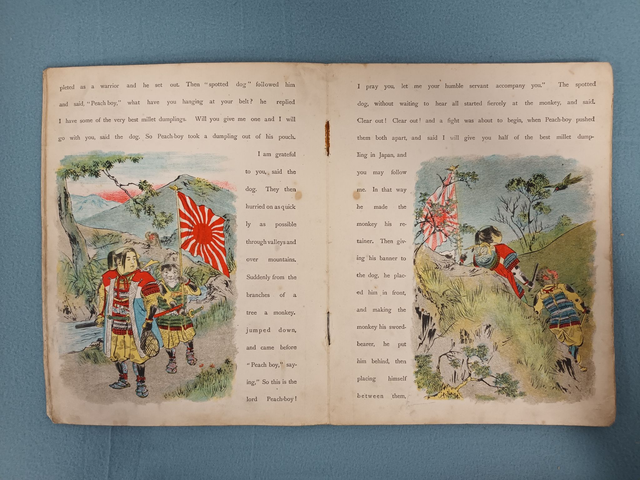 pleted as a warrior and he set out. Then "spotted dog" followed him
and said, "Peach boy," what have you hanging at your belt? he replied
I have some of the very best millet dumplings. Will you give me one and I will
go with you, said the dog. So Peach-boy took a dumpling out of his pouch.
I am grateful
to you, said the
dog. They then
hurried on as quick
ly as possible
through valleys and
over mountains.
Suddenly from the
branches of a
tree a monkey,
jumped down,
and came before
"Peach boy," say-
ing," So this is the
lord Peach-boy!
I pray you, let me your humble servant accompany you." The spotted
dog, without waiting to hear all started fiercely at the monkey, and said.
Clear out! Clear out! and a fight was about to begin, when Peach-boy pushed
them both apart, and said I will give you half of the best millet dump-
ling in Japan, and
you may follow
me. In that way
he made the
monkey his re-
tainer. Then giv-
ing his banner to
the dog, he plac-
ed him in front,
and making the
monkey his sword-
bearer, he put
him behind, then
placing himself
between them,